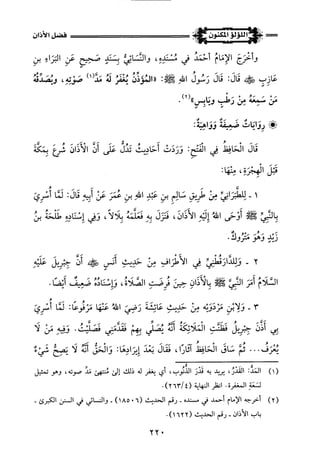 اللؤلؤ المكنون
فضل الأذان
وأخرج الإمام أحمد في مسنده، والنسائي بسند صحيح عن البراء بن
عازب ﷺ قال: قال رسول الله ﷺ: «المؤذن يغفر له مد(١) صوته، ويصدقه
من سمعه من رطب ويابس»(٢).
روايات ضعيفة وواهية:
قال الحافظ في الفتح: وردت أحاديث تدل على أن الأذان شرع بمكة
قبل الهجرة، منها:
١ - للطبراني من طريق سالم بن عبد الله بن عمر عن أبيه قال: لما أسري
بالنبي ﷺ أوحى الله إليه الأذان، فنزل به فعلمه بلالا، وفي إسناده طلحة بن
زيد وهو متروك.
٢ - وللدارقطني في الأطراف من حديث أنس ﷺ أن جبريل عليه
السلام أمر النبي ﷺ بالأذان حين فرضت الصلاة، وإسناده ضعيف أيضا.
٣ - ولابن مردويه من حديث عائشة رضي الله عنها مرفوعا: لما أسري
بي أذن جبريل فظنت الملائكة أنه يصلي بهم فقدمني فصليت. وفيه من لا
يعرف... ثم ساق الحافظ آثارا، فقال بعد إيرادها: والحق أنه لا يصح شيء
(١) المد: القدر، يريد به قدر الذنوب، أي يغفر له ذلك إلى منتهى مد صوته، وهو تمثيل
لسعة المغفرة. انظر النهاية (٢٦٣/٤).
(٢) أخرجه الإمام أحمد في مسنده - رقم الحديث (١٨٥٠٦) - والنسائي في السنن الكبرى -
باب الأذان - رقم الحديث (١٦٢٢).
٢٢٠